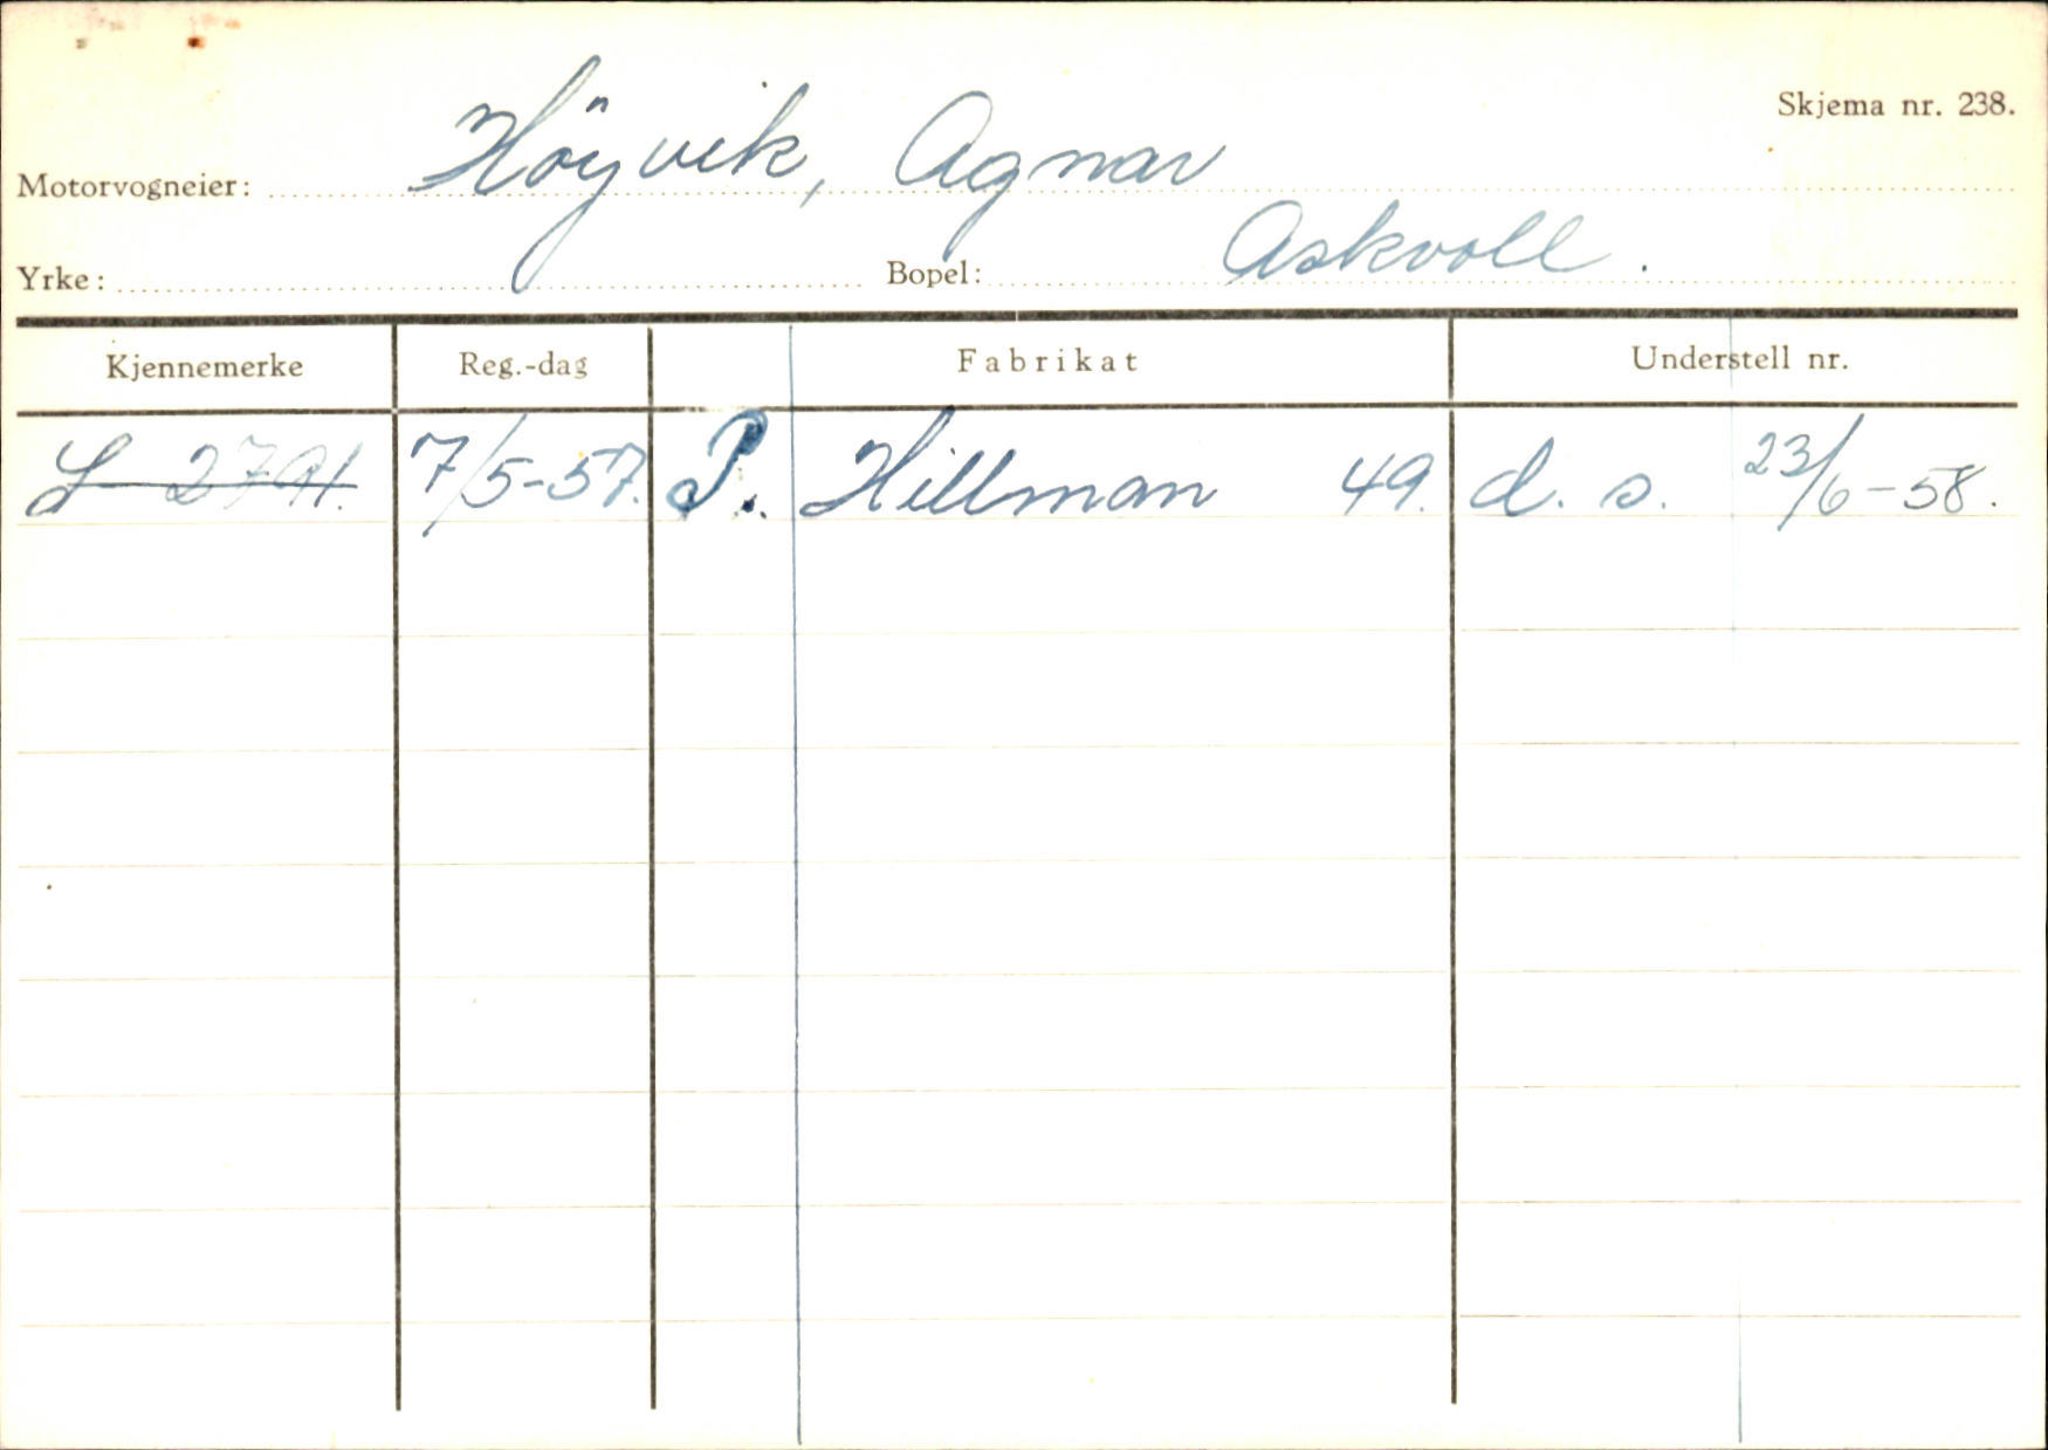 Skjema nr. 238.
Motorvogneier: Höyvik, Agnar
Yrke: Bopel: Askvoll.
Kjennemerke Reg.-dag Fabrikat Understell nr.
S 2791. 7/5-57. P. Hillman 49. d. s. 23/6-58.